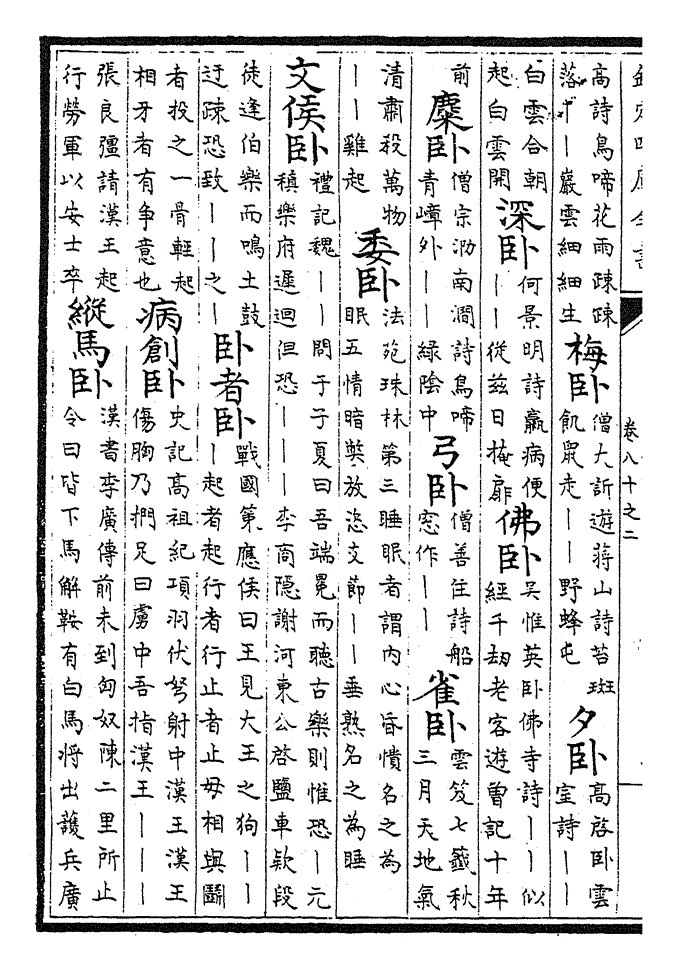 欽定四庫全書
卷八十之二
高詩鳥啼花雨疎疎
落丨丨巖雲細細生
梅卧
僧大訢遊蔣山詩苔斑
飢鼠走丨丨野蜂屯
夕卧
高啓卧雲
室詩丨丨
白雲合朝
起白雲開
深卧
何景明詩羸病便
丨丨從兹日掩扉
佛卧
吳惟英卧佛寺詩丨丨似
經千劫老客遊曾記十年
前
麋卧
僧宗泐南澗詩鳥啼
青嶂外丨丨緑陰中
弓卧
僧善住詩船
窓作丨丨
雀卧
雲笈七籤秋
三月天地氣
清肅殺萬物
丨丨雞起
委卧
法苑珠林第三睡眠者謂内心昏憒名之為
眠五情暗獘放恣支節丨丨垂熟名之為睡
文侯卧
禮記魏丨丨問于子夏曰吾端冕而聽古樂則惟恐丨元
稹樂府遲迴但恐丨丨丨李商隱謝河東公啓鹽車欵段
徒逢伯樂而鳴土鼓
迂疎恐致丨丨之丨
卧者卧
戰國策應侯曰王見大王之狗丨丨
丨起者起行者行止者止毋相與鬭
者投之一骨輕起
相牙者有争意也
病創卧
史記高祖紀項羽伏弩射中漢王漢王
傷胸乃捫足曰虜中吾指漢王丨丨丨
張良彊請漢王起
行勞軍以安士卒
縱馬卧
漢書李廣傳前未到匈奴陳二里所止
令曰皆下馬解鞍有白馬將出護兵廣